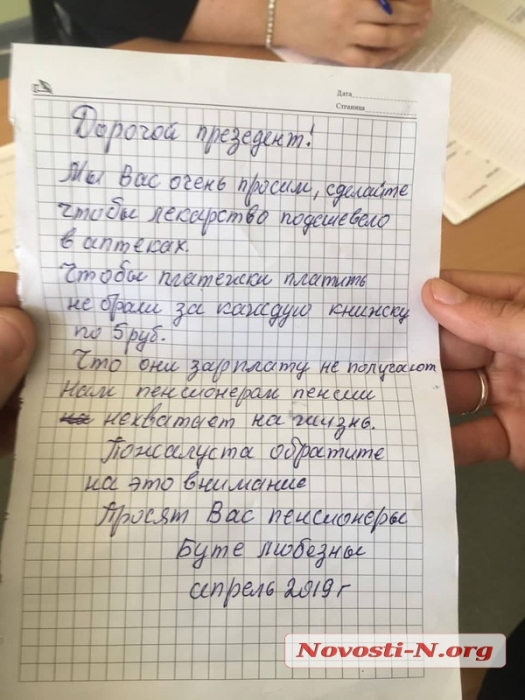 Дата
Страница
Дорогой президент!
Мы Вас очень просим, сделайте
чтобы лекарство подешевело
в аптеках.
Чтобы платежки платить
не брали за каждую книжку
по 5 руб.
Что они зарплату не получают
нам пенсионерам пенсии
нехватает на жизнь.
Пожалуста обратите
на это внимание
Просят Вас пенсионеры
Буте любезны
апрель 2019 г
Novosti-N.org